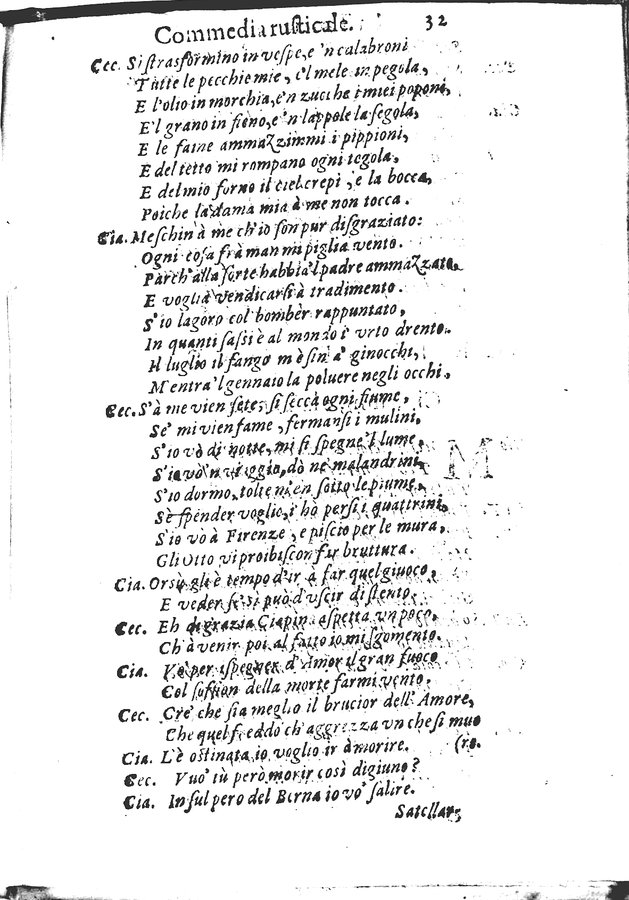 Commedia rusticale. 32
Cec. Si strasformino in vespe, e 'n calabroni
Tutte le pecchie mie, e'l mele in pegola,
E l'olio in morchia, e'n zucche i miei poponi,
E'l grano in fieno, e 'n lappole la segola,
E le faine ammazzinmi i pippioni,
E del tetto mi rompano ogni tegola,
E del mio forno il ciel crepi, e la bocca,
Poiche la dama mia à me non tocca.
Cia. Meschin' à me ch'io son pur disgraziato:
Ogni cosa frà man mi piglia vento.
Par ch' alla sorte habbia'l padre ammazzato,
E voglia vendicarsi à tradimento.
S'io lagoro col bombèr rappuntato,
In quanti sassi è al mondo i' vrto drento.
Il luglio il fango m'è sin' a' ginocchi,
Mentra'l gennaio la poluere negli occhi.
Cec. S'à me vien sete, si secca ogni fiume,
Se' mi vien fame, fermansi i mulini,
S'io vò di notte, mi si spegne'l lume,
S'io vò 'n viaggio, dò ne' malandrini,
S'io dormo, tolte m'en sotto le piume,
Sè spender voglio, i' hò persi i quattrini,
S'io vò à Firenze, e piscio per le mura,
Gli Otto vi proibiscon far bruttura.
Cia. Orsù gli è tempo d'ir à far quel giuoco,
E veder se si può d'vscir di stento.
Cec. Eh di grazia Ciapin aspetta vn poco,
Ch'à venir poi al fatto io mi sgomento.
Cia. Vò per ispegner d'Amor il gran fuoco
Col soffion della morte farmi vento.
Cec. Cre' che sia meglio il brucior dell' Amore,
Che quel freddo ch'aggrezza vn che si muo
Cia. L'è ostinata io voglio ir à morire. (re.
Cec. Vuo' tù però morir così digiuno?
Cia. In sul pero del Berna io vo' salire.
Satellar,